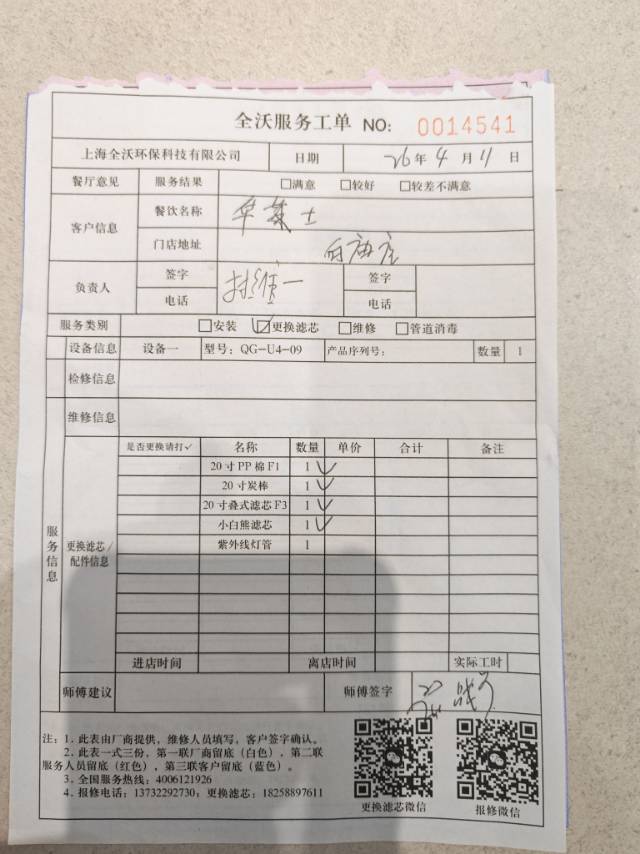 全沃服务工单 NO: 0014541
上海全沃环保科技有限公司 日期 26年 4 月 11 日
餐厅意见 服务结果 □满意 □较好 □较差不满意
客户信息 餐饮名称 华莱士
门店地址 白庙店
负责人 签字 签字
电话 电话
服务类别 □安装 ☑更换滤芯 □维修 □管道消毒
设备信息 设备一 型号：QG-U4-09 产品序列号： 数量 1
检修信息
维修信息
服务信息
更换滤芯/配件信息
是否更换请打✓ 名称 数量 单价 合计 备注
20寸PP棉F1 1 ✓
20寸炭棒 1 ✓
20寸叠式滤芯F3 1 ✓
小白熊滤芯 1 ✓
紫外线灯管 1
进店时间 离店时间 实际工时
师傅建议 师傅签字
注：1．此表由厂商提供，维修人员填写，客户签字确认。
2．此表一式三份，第一联厂商留底（白色），第二联
服务人员留底（红色），第三联客户留底（蓝色）。
3．全国服务热线：4006121926
4．报修电话：13732292730；更换滤芯：18258897611
更换滤芯微信 报修微信